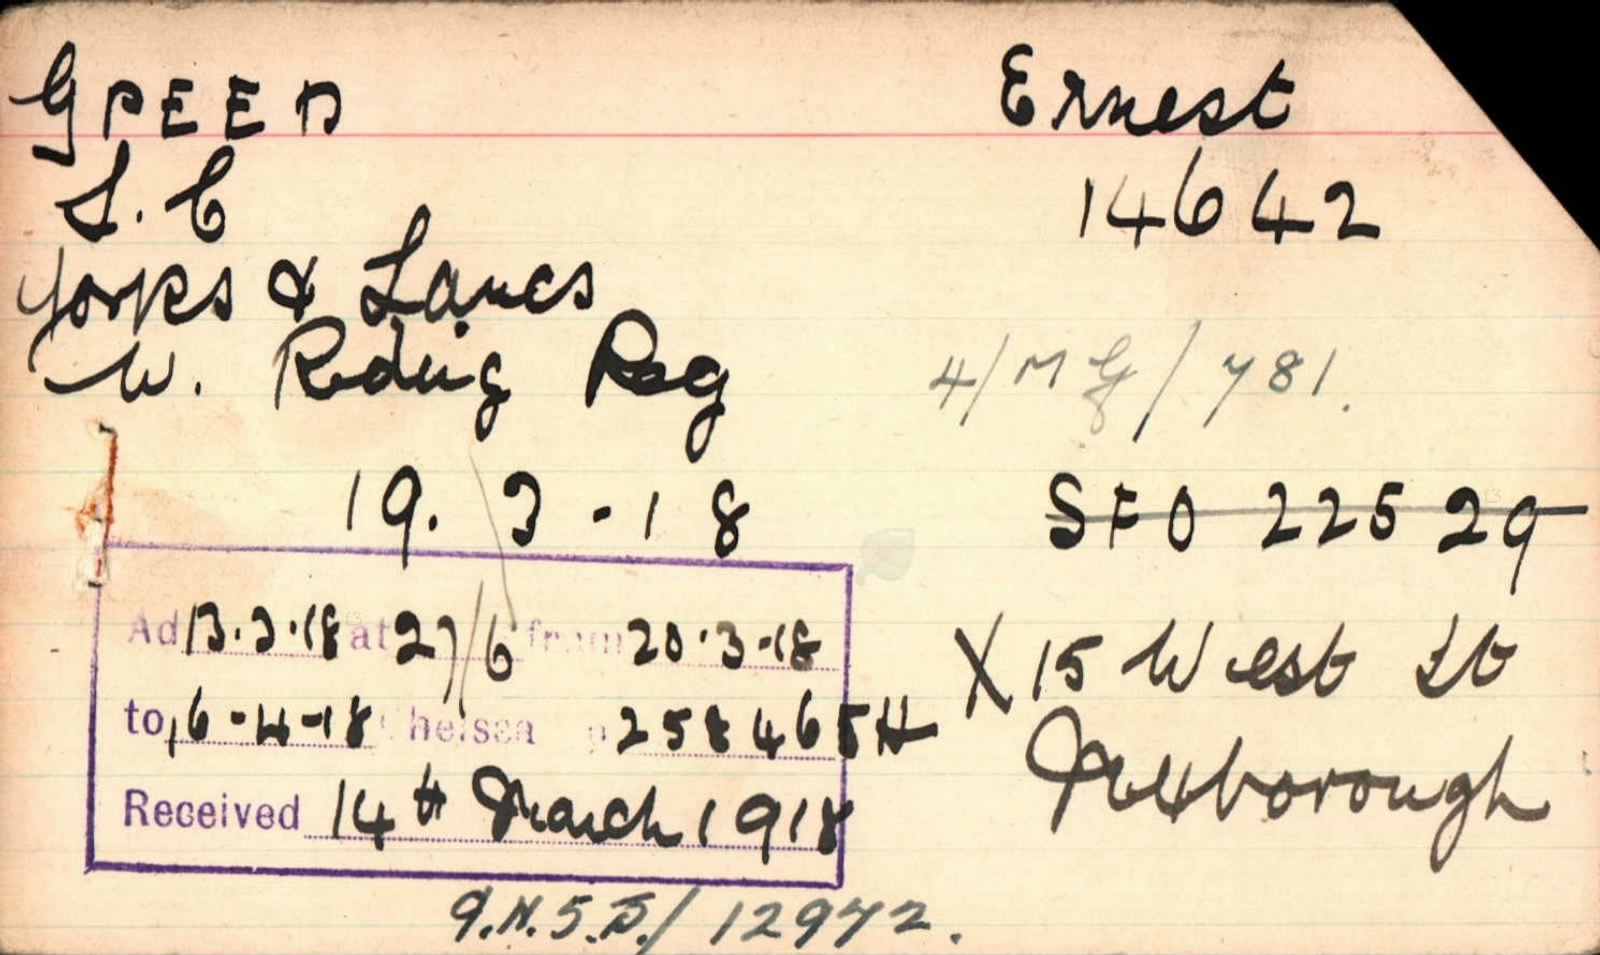 GREEN Ernest
L. C 14642
Yorks & Lancs
W. Riding Reg 4/MG/781.
19. 3 - 18 SFO 22529
Ad 13.3.18 at 27/6 from 20.3.18 X 15 West St
to 16-4-18 Chelsea 258465H Mexborough
Received 14th March 1918
9.N.5.D./12972.